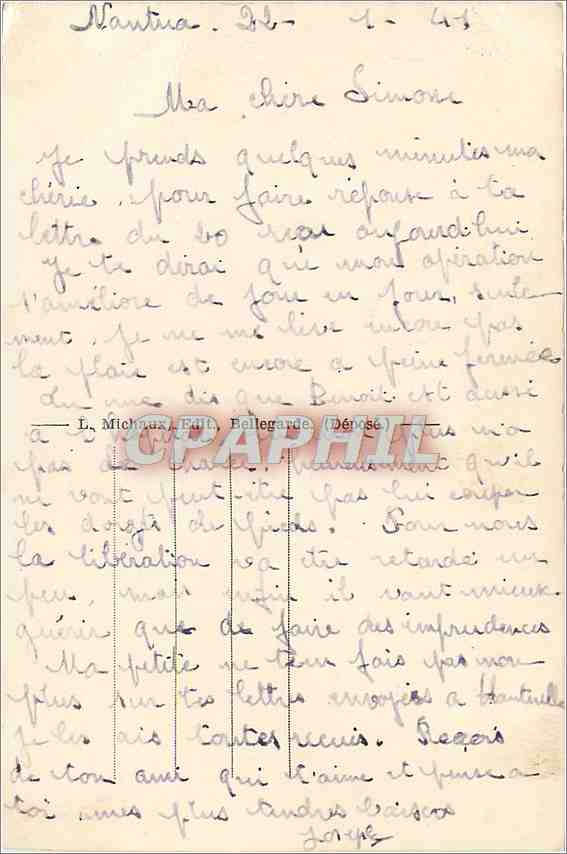 Nantua. 22 - 1 - 41
Ma chère Simone
Je prends quelques minutes ma
chérie, pour faire réponse à ta
lettre du 20 reçu aujourd'hui
Je te dirai que mon opération
s'améliore de jour en jour, seule-
ment, je ne me lève encore pas
la plaie est encore a peine fermée
Tu me dis que Benoit est aussi
L. Michaux, Edit., Bellegarde. (Déposé.)
CPARPHIL
a l'hôpital pas
pas de qu'il
ne vont peut-être pas lui couper
les doigts de pieds. Pour nous
la libération va être retardé un
peu, mais enfin il vaut mieux
guérir que de faire des imprudences
Ma petite ne t'en fais pas non
plus sur tes lettres envoyées a
je les ais toutes recuis. Reçois
de ton ami qui t'aime et pense a
toi mes plus tendres baisers
Joseph